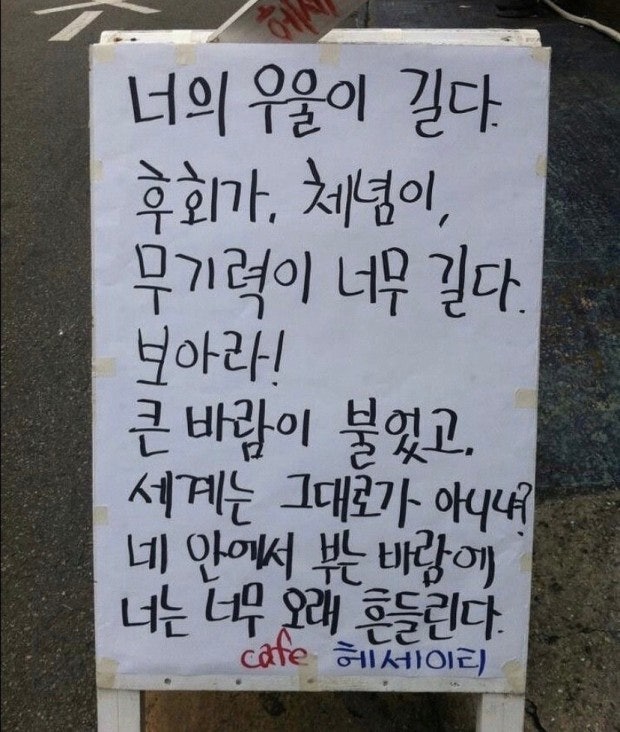 너의 우울이 길다.
후회가, 체념이,
무기력이 너무 길다.
보아라!
큰 바람이 불었고,
세계는 그대로가 아니냐?
네 안에서 부는 바람에
너는 너무 오래 흔들린다.
cafe 헤세이티